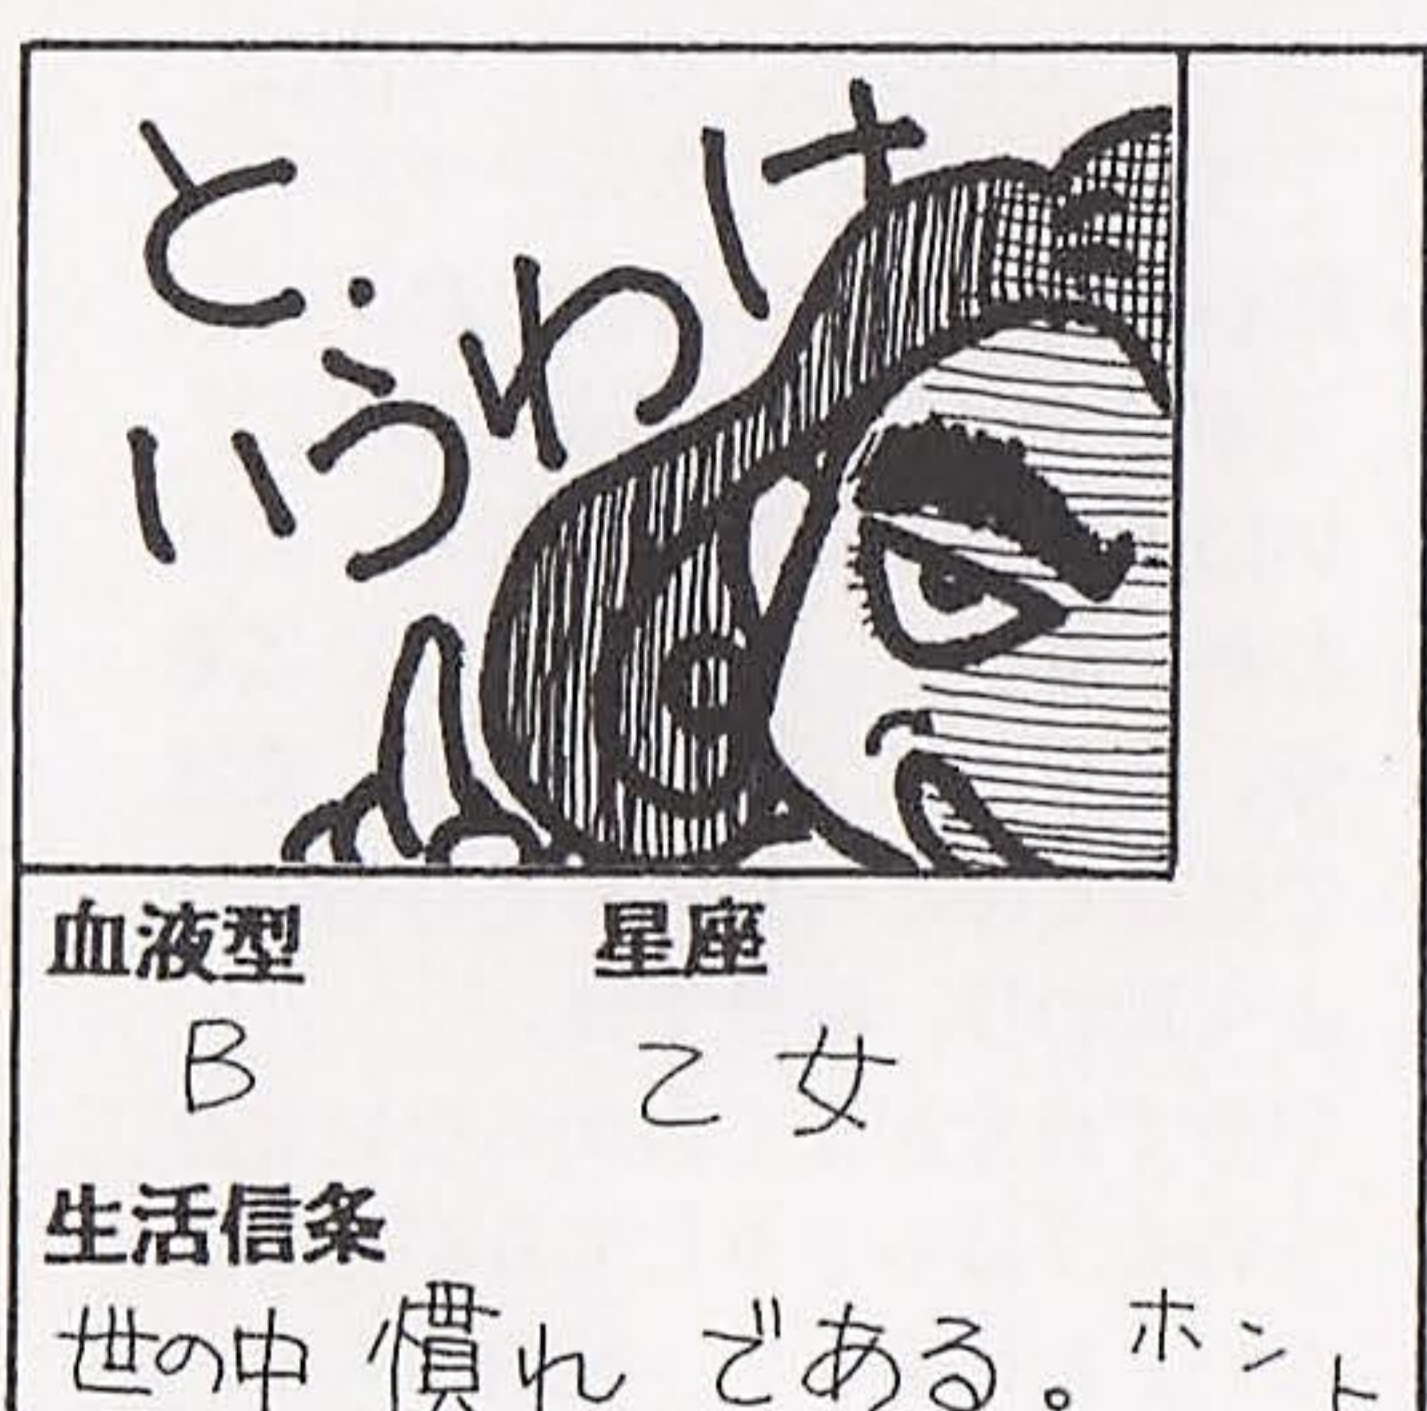 と、
いうわけ
血液型 星座
B 乙女
生活信条
世の中 慣れ である。ホント